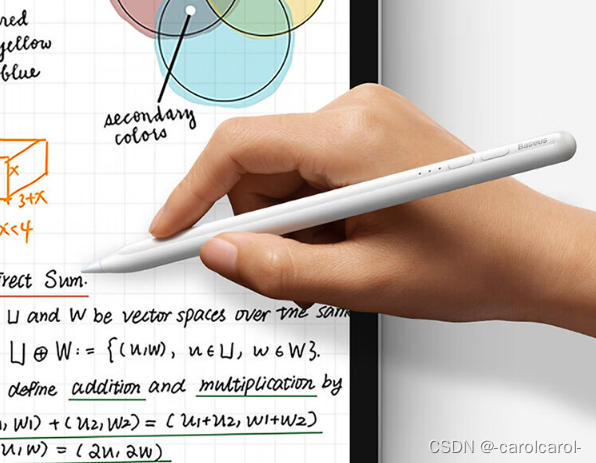 red
yellow
blue
secondary
colors
x
3+x
x<4
rect Sum.
U and W be vector spaces over the sam
U ⊕ W := {(u,w), u ∈ U, w ∈ W}.
define addition and multiplication by
, w1) + (u2, w2) = (u1+u2, w1+w2)
u, w) = (2u, 2w)
Baseus
CSDN @-carolcarol-